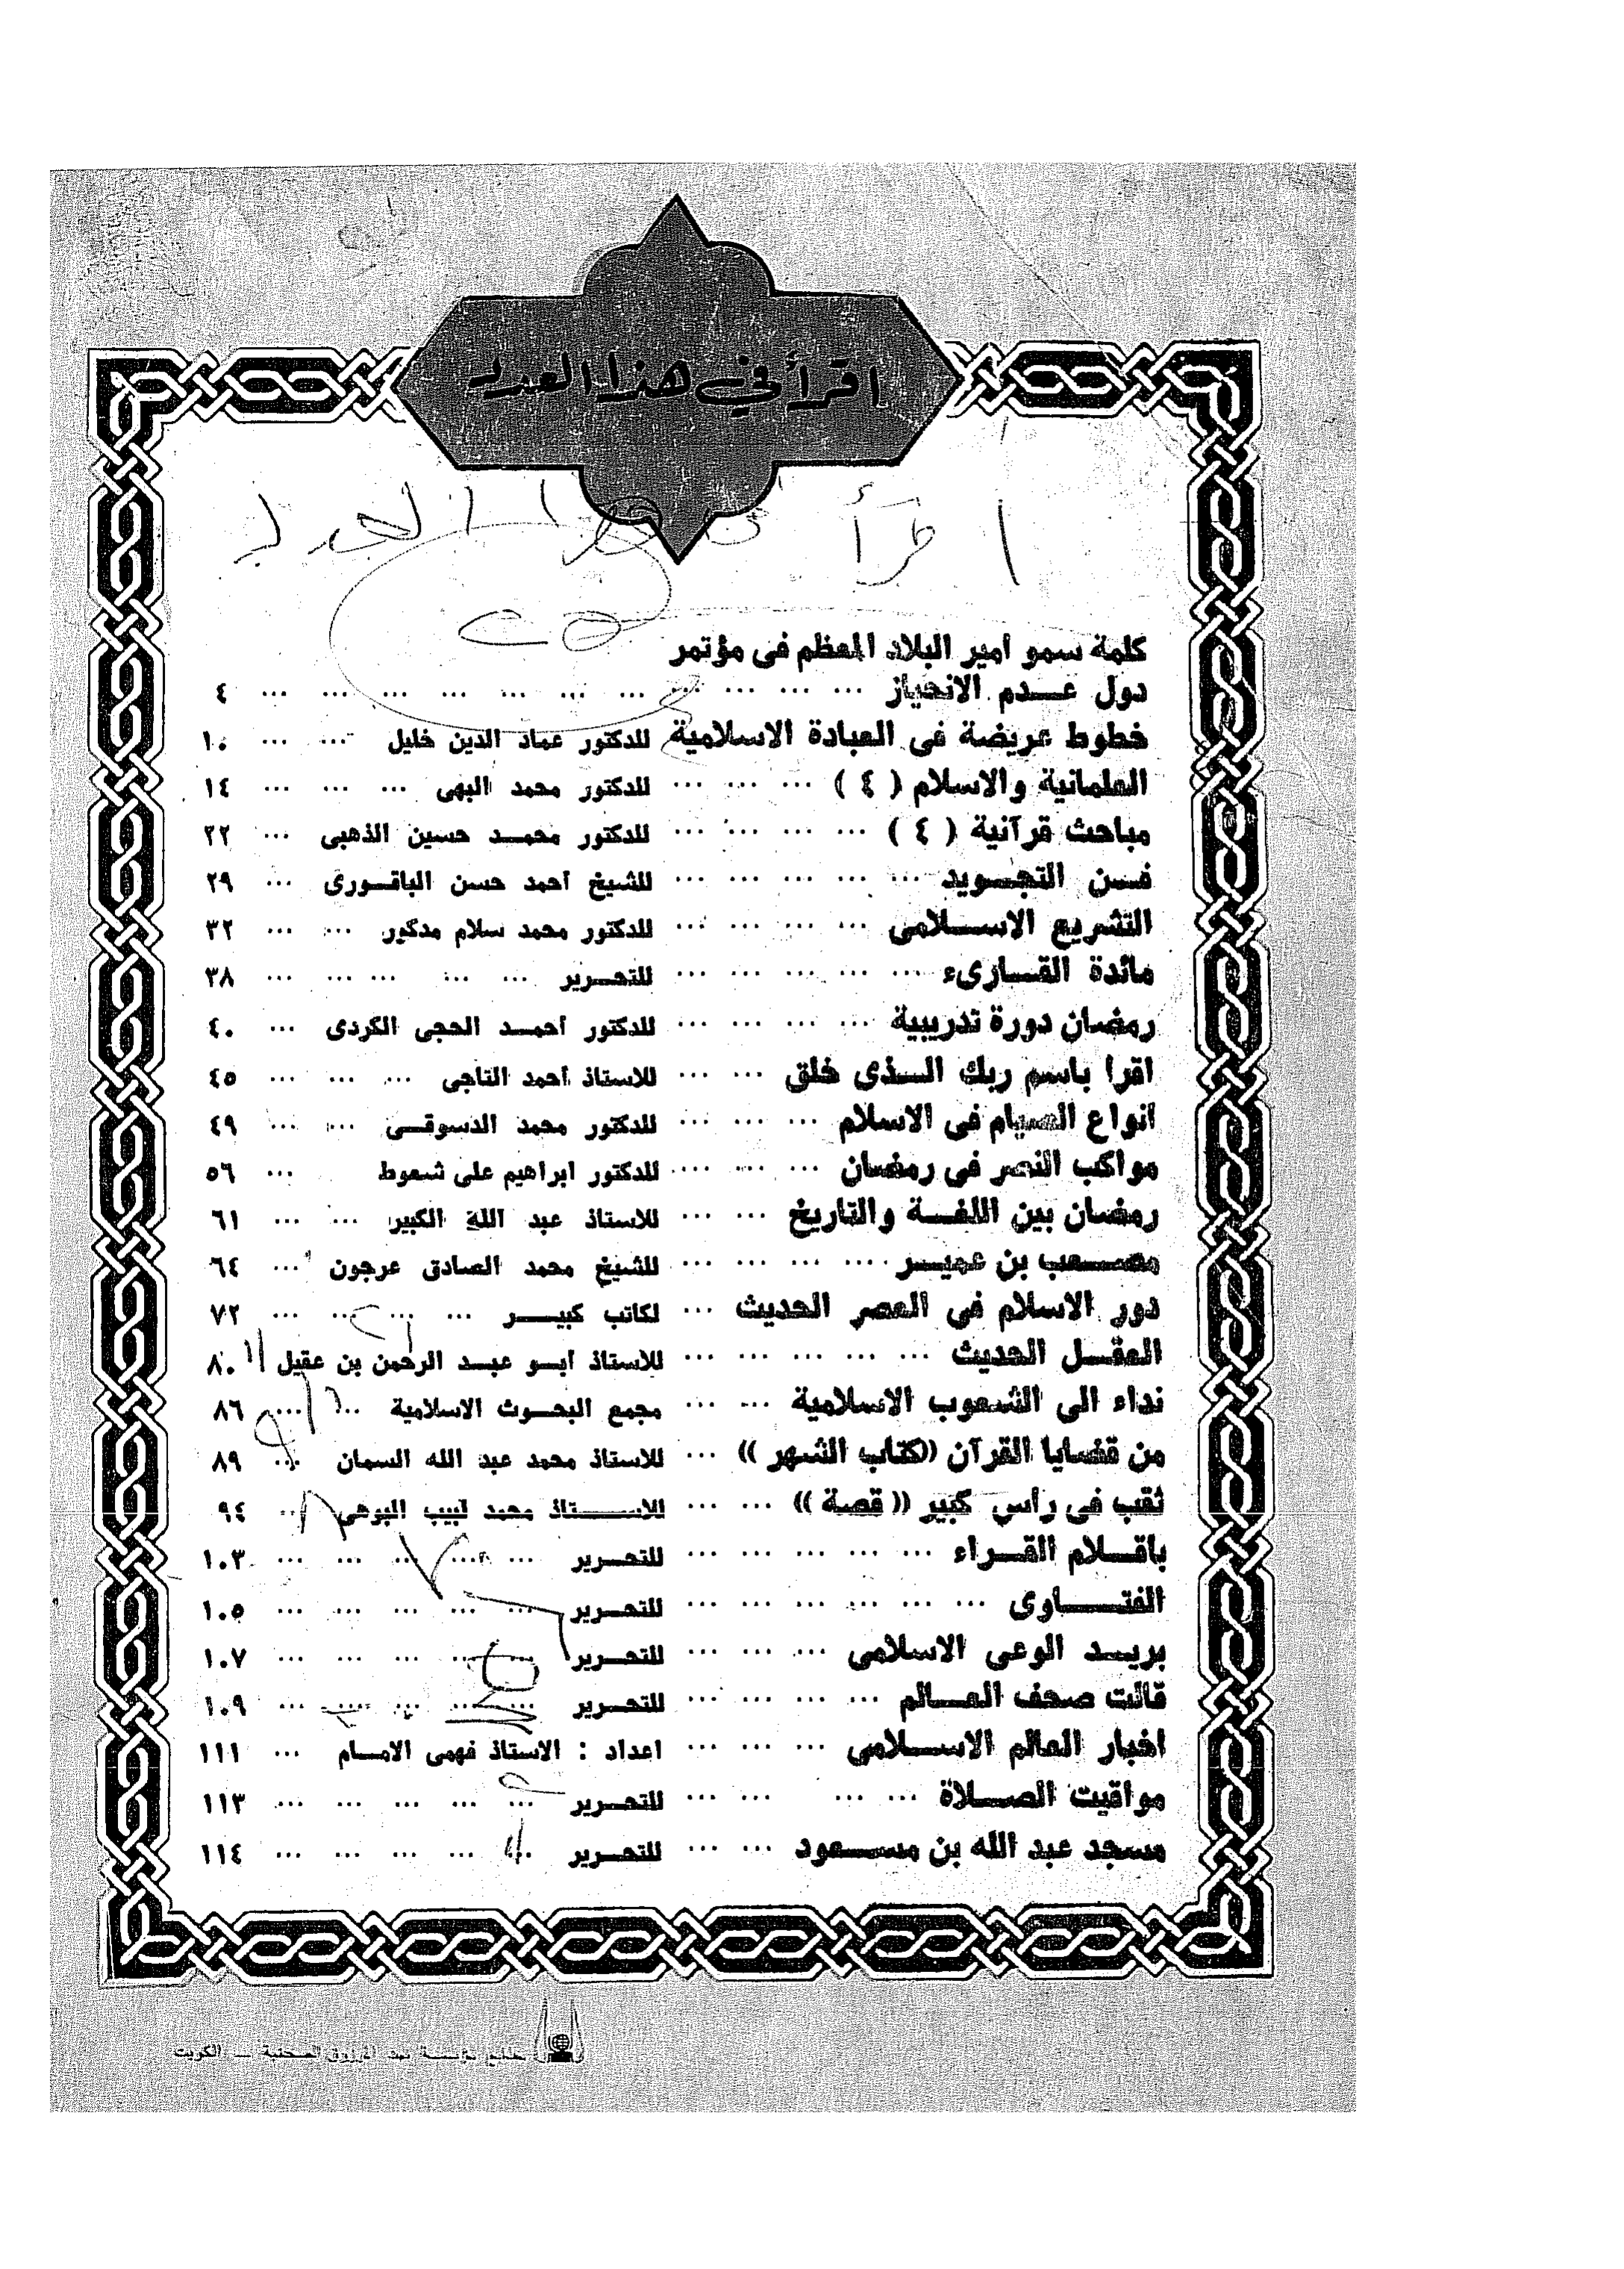 اقرأ في هذا العدد
اقرأ هذا العدد
كلمة سمو امير البلاد المعظم فى مؤتمر
دول عـــدم الانحياز ... ... ... ... ... ... ... ... ... ... ... ٤
خطوط عريضة فى العبادة الاسلامية للدكتور عماد الدين خليل ... ... ١٠
العلمانية والاسلام ( ٤ ) ... ... ... للدكتور محمد البهى ... ... ... ١٤
مباحث قرآنية ( ٤ ) ... ... ... ... للدكتور محمــد حسين الذهبى ... ٢٢
فــن التجــويد ... ... ... ... ... للشيخ أحمد حسن الباقــورى ... ٢٩
التشريع الاســلامى ... ... ... ... للدكتور محمد سلام مدكور ... ... ٣٢
مائدة القــارىء ... ... ... ... ... للتحــرير ... ... ... ... ... ٣٨
رمضان دورة تدريبية ... ... ... ... للدكتور أحمــد الحجى الكردى ... ٤٠
اقرا باسم ربك الــذى خلق ... ... للاستاذ أحمد التاجى ... ... ... ٤٥
انواع الصيام فى الاسلام ... ... ... للدكتور محمد الدسوقــى ... ... ٤٩
مواكب النصر فى رمضان ... ... ... للدكتور ابراهيم على شعوط ... ٥٦
رمضان بين اللغــة والتاريخ ... ... للاستاذ عبد الله الكبير ... ... ٦١
مصــعب بن عميــر ... ... ... ... للشيخ محمد الصادق عرجون ... ٦٤
دور الاسلام فى العصر الحديث ... لكاتب كبيـــر ... ... ... ... ٧٢
العقــل الحديث ... ... ... ... ... للاستاذ ابــو عبــد الرحمن بن عقيل ٨٠
نداء الى الشعوب الاسلامية ... ... مجمع البحــوث الاسلامية ... ... ٨٦
من قضايا القرآن ((كتاب الشهر )) ... للاستاذ محمد عبد الله السمان ... ٨٩
ثقب فى رأس كبير (( قصة )) ... ... للاســــتاذ محمد لبيب البوهى ... ٩٤
باقــلام القــراء ... ... ... ... ... للتحــرير ... ... ... ... ... ١٠٣
الفتــــاوى ... ... ... ... ... ... للتحــرير ... ... ... ... ... ١٠٥
بريــد الوعى الاسلامى ... ... ... للتحــرير ... ... ... ... ... ١٠٧
قالت صحف العــالم ... ... ... ... للتحــرير ... ... ... ... ... ١٠٩
اخبار العالم الاســلامى ... ... ... اعداد : الاستاذ فهمى الامــام ... ١١١
مواقيت الصــلاة ... ... ... ... للتحــرير ... ... ... ... ... ١١٣
مسجد عبد الله بن مســعود ... ... للتحــرير ... ... ... ... ... ١١٤
مؤسسة فهد المرزوق الصحفية — الكويت